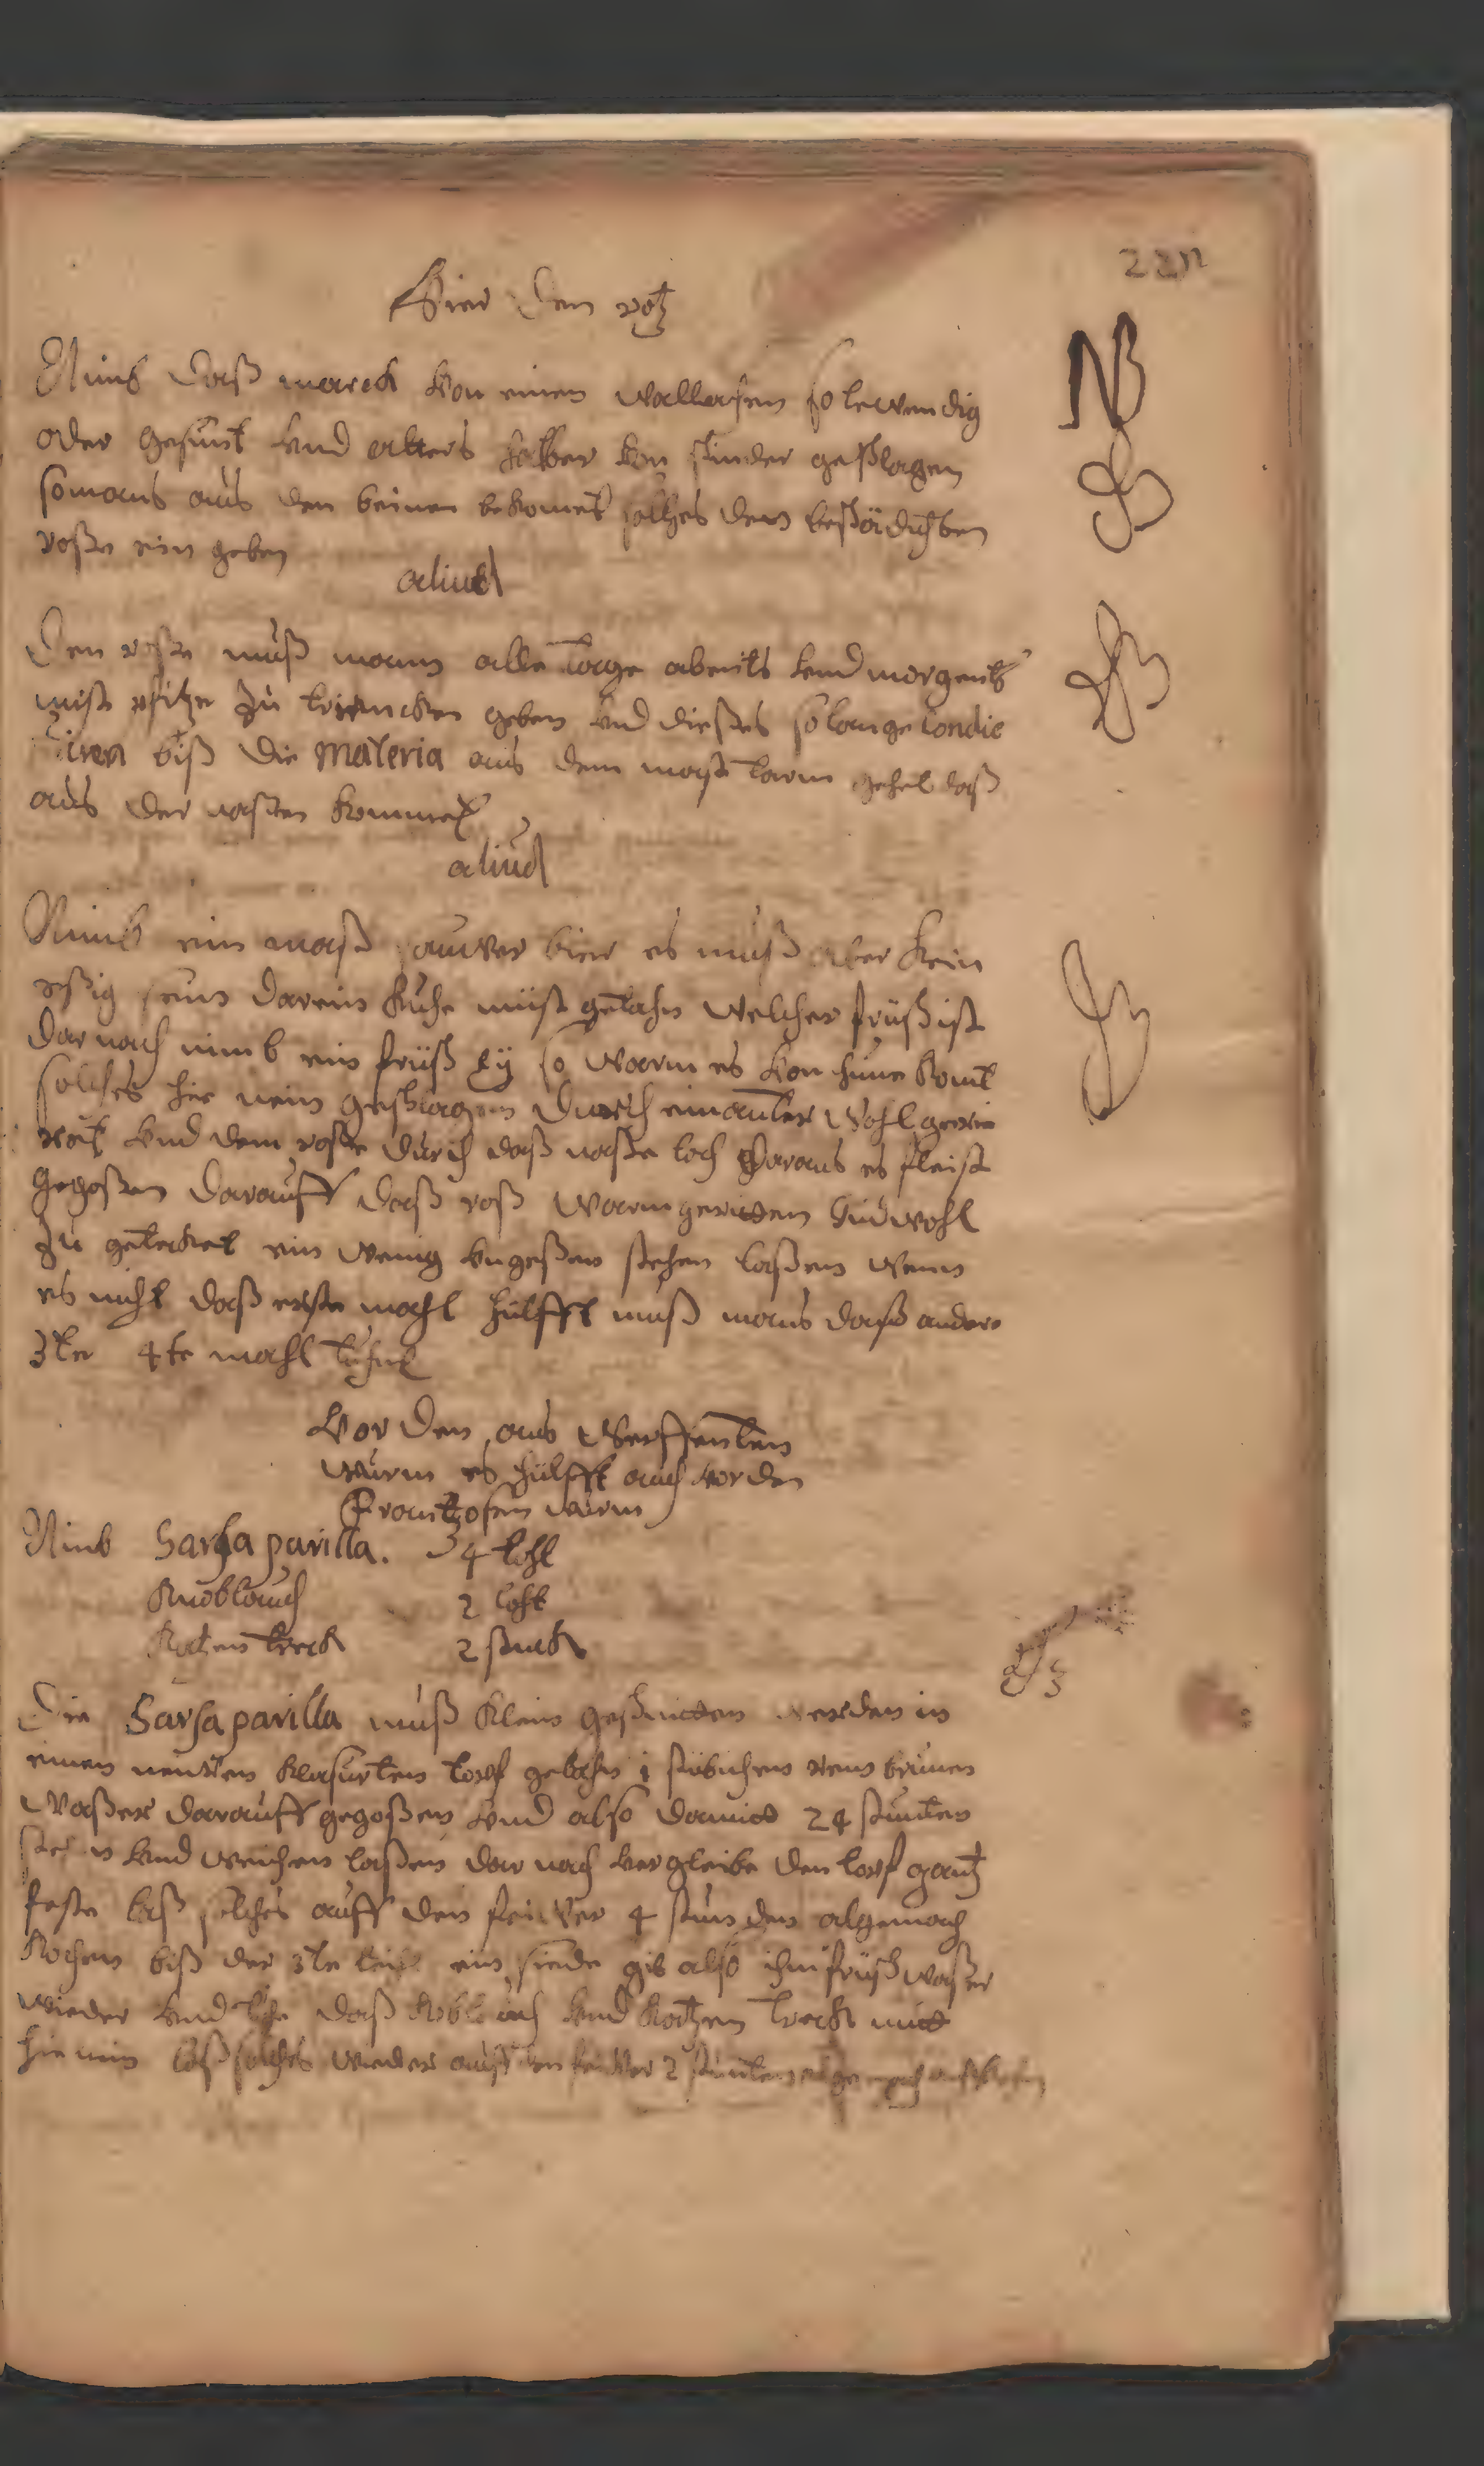 221
Vier den rotz
NB
Nimb daß marck von einen wallachen so lewendig
oder gesunt vnd alters halber von schinder geschlagen
so mans aus den beinen bekomet solches dem beschädichten
roße ein geben
aliud
Den roße muß mann alle tage abents vnd morgents
mist pfitze zu trincken geben vnd dießes so lange condie
biß die Materia aus dem mast tarm gehet daß
aus der naßen kommet
aliud
Nimb ein maß sauwer bier es muß aber kein
eßig sein darein kuhe mist getahn welcher früsch ist
dar nach nimb ein früsch ey so warm es von hune komt
solches hie nein geschlagen durch einanter wohl gerie
ret vnd dem roße durch daß naße loch daraus es fleist
gegoßen darauff daß roß warm geritten vnd wohl
zu getecket ein wenig vngeßen stehen laßen wenn
es nicht daß erste mahl hülfft muß mans daß andere
3te 4te mahl tuhn
Vor den aus werffenten
wurm es hülfft auch vor den
Frantzosen wurm
Nimb Sarsa parilla. 4 loht
Knoblauch 2 loht
Katzen treck 2 stuck
Die Sarsa parilla muß klein geschnitten werden in
einen neuwen klasurten topf getahn 1 stübichen rein brunen
waßer darauff gegoßen vnd also damitt 24 stunten
stehn vnd weichen laßen dar nach vergleibe den topf gantz
feste laß solches auff den feiwer 4 stunden algemach
kochen biß der 3te teihl ein siede gib also ihm früsch waßer
wieder vnd tuhe daß knoblauch vnd katzen treck mitt
hie nein laß solches wieder auff den feiwer 2 stunten algemach